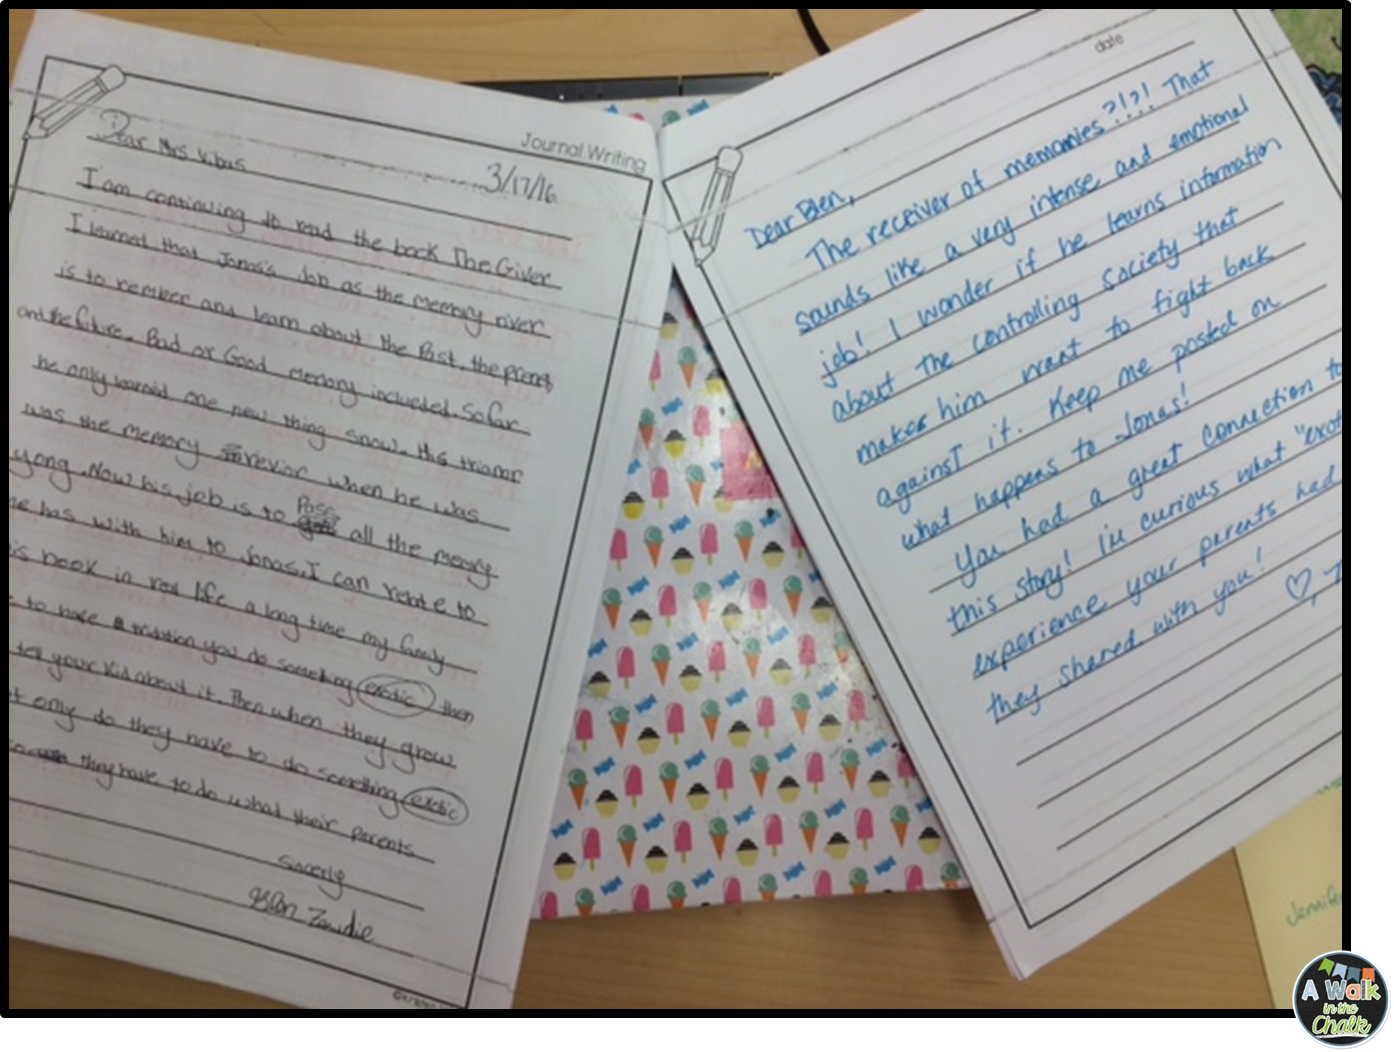 Journal Writing
3/17/16
Dear Mrs
I am continuing to read the book The Giver
I learned that Jonas's job as the memory river
is to rember and learn about the Past, the present
and the future. Bad or Good memory included. So far
he only learned one new thing snow. His trianor
was the memory revior when he was
yong. Now his job is to Pass all the memory
he has with him to Jonas. I can relate to
is book in real life a long time my family
to have a tridition you do something exotic then
tell your kid about it. Then when they grow
only do they have to do something exotic
they have to do what their parents
Sincerly
Blen Zewdie
date
Dear Blen,
The receiver of memories?!?! That
sounds like a very intense and emotional
job! I wonder if he learns information
about the controlling society that
makes him want to fight back
against it. Keep me posted on
what happens to Jonas!
You had a great connection to
this story! I'm curious what "exot
experience your parents had
they shared with you!
♡,
Jennifer
A Walk
in the
Chalk